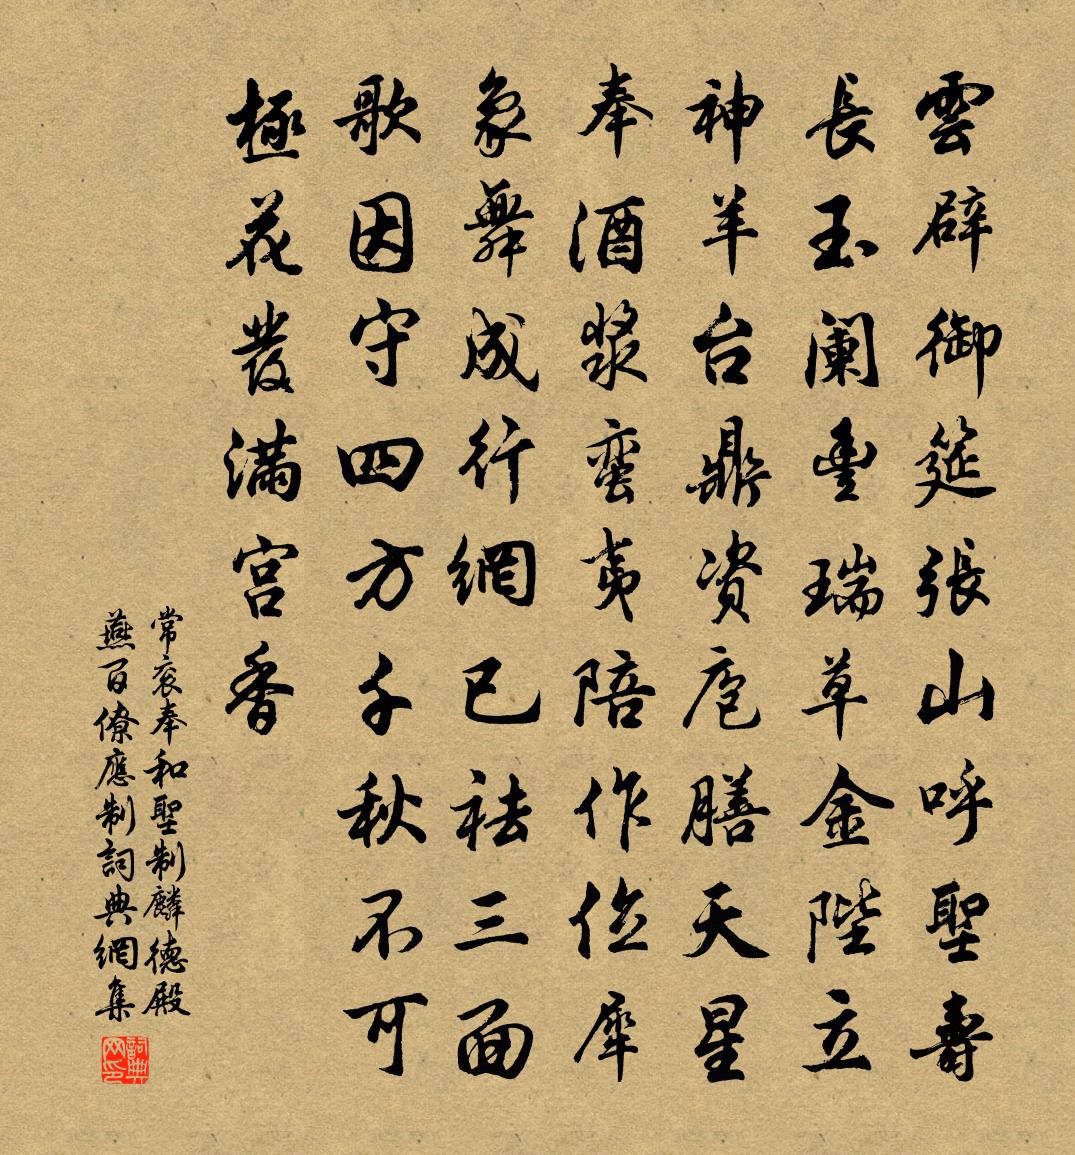 雲辟御筵張山呼聖壽
長玉闌豐瑞草金陛立
神羊台鼎資庖膳天星
奉酒漿蠻夷陪作位犀
象舞成行網已祛三面
歌因守四方千秋不可
極花發滿宮香
常袞奉和聖制麟德殿
燕百僚應制詞典網集
詞典网印